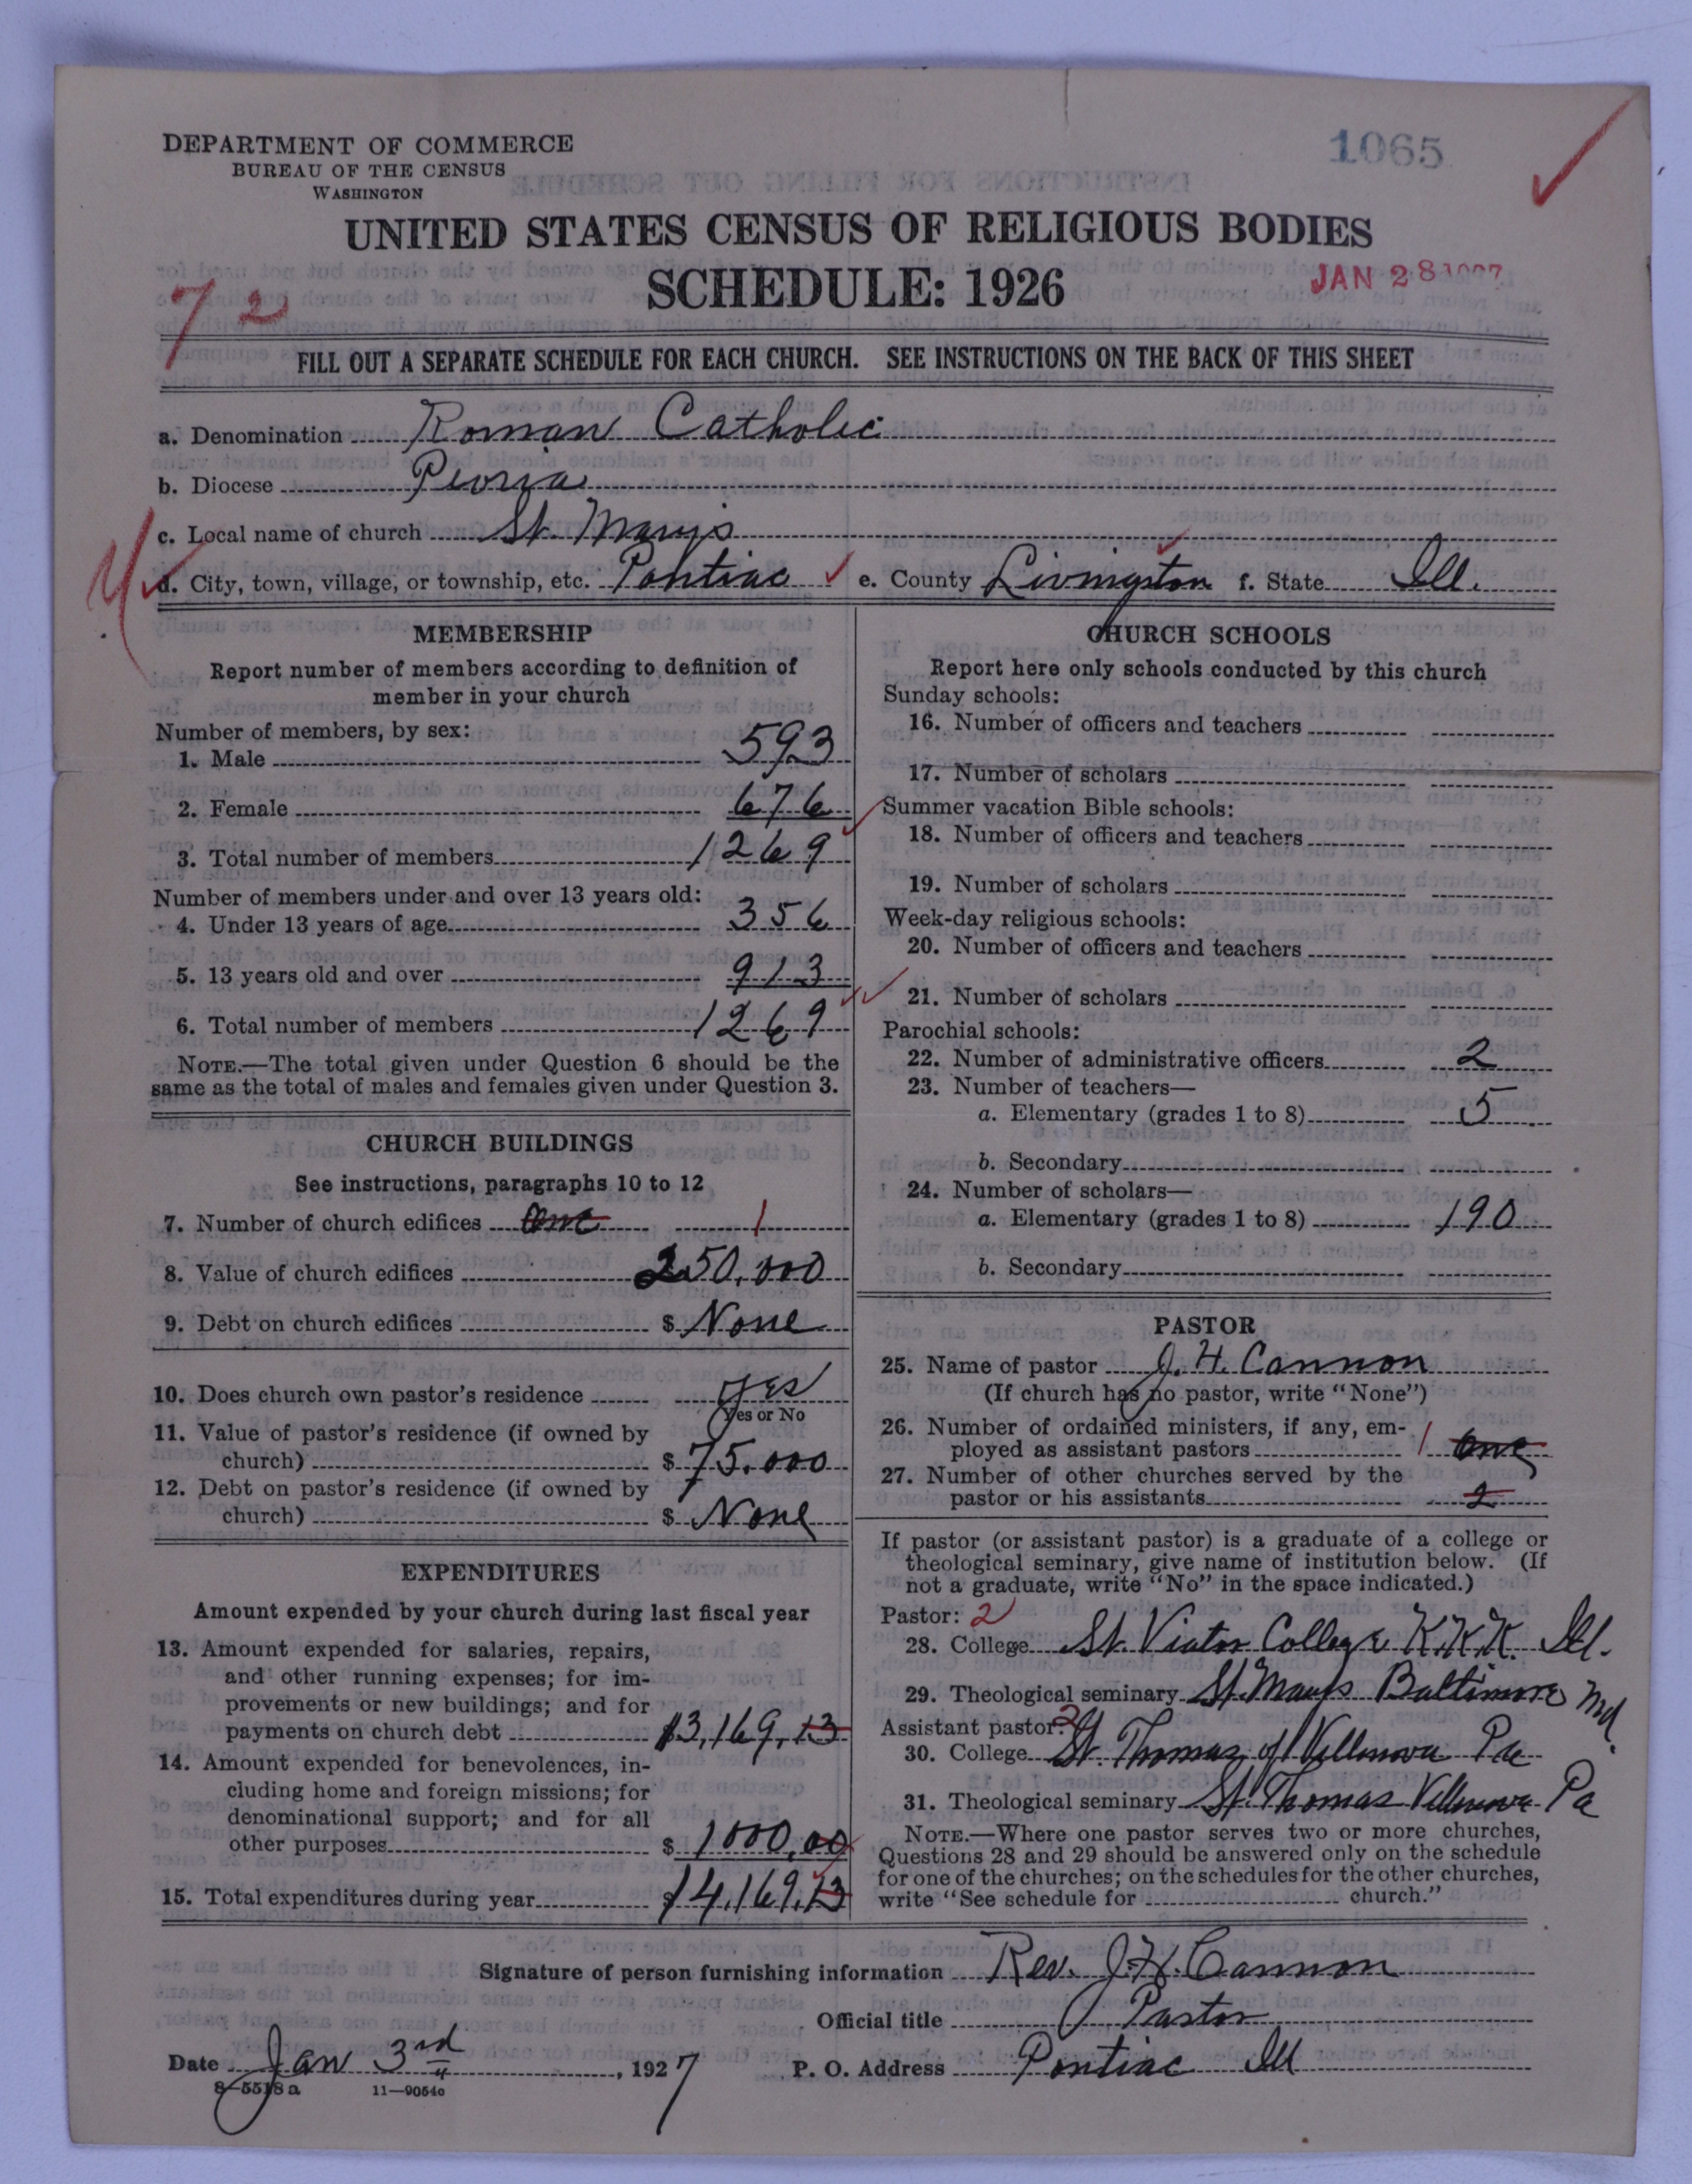 DEPARTMENT OF COMMERCE
BUREAU OF THE CENSUS
WASHINGTON
1065
UNITED STATES CENSUS OF RELIGIOUS BODIES
SCHEDULE: 1926
JAN 28 1927
72
FILL OUT A SEPARATE SCHEDULE FOR EACH CHURCH. SEE INSTRUCTIONS ON THE BACK OF THIS SHEET
a. Denomination Roman Catholic
b. Diocese Peoria
c. Local name of church St. Marys
d. City, town, village, or township, etc. Pontiac e. County Livingston f. State Ill.
MEMBERSHIP
Report number of members according to definition of
member in your church
Number of members, by sex:
1. Male 593
2. Female 676
3. Total number of members 1269
Number of members under and over 13 years old:
4. Under 13 years of age 356
5. 13 years old and over 913
6. Total number of members 1269
NOTE.—The total given under Question 6 should be the
same as the total of males and females given under Question 3.
CHURCH BUILDINGS
See instructions, paragraphs 10 to 12
7. Number of church edifices One 1
8. Value of church edifices 250,000
9. Debt on church edifices $ None
10. Does church own pastor's residence yes
Yes or No
11. Value of pastor's residence (if owned by
church) $ 75,000
12. Debt on pastor's residence (if owned by
church) $ None
EXPENDITURES
Amount expended by your church during last fiscal year
13. Amount expended for salaries, repairs,
and other running expenses; for im-
provements or new buildings; and for
payments on church debt $13,169.13
14. Amount expended for benevolences, in-
cluding home and foreign missions; for
denominational support; and for all
other purposes $ 1000.00
15. Total expenditures during year $14,169.13
CHURCH SCHOOLS
Report here only schools conducted by this church
Sunday schools:
16. Number of officers and teachers
17. Number of scholars
Summer vacation Bible schools:
18. Number of officers and teachers
19. Number of scholars
Week-day religious schools:
20. Number of officers and teachers
21. Number of scholars
Parochial schools:
22. Number of administrative officers 2
23. Number of teachers—
a. Elementary (grades 1 to 8) 5
b. Secondary
24. Number of scholars—
a. Elementary (grades 1 to 8) 190
b. Secondary
PASTOR
25. Name of pastor J. H. Cannon
(If church has no pastor, write "None")
26. Number of ordained ministers, if any, em-
ployed as assistant pastors 1 one
27. Number of other churches served by the
pastor or his assistants 2
If pastor (or assistant pastor) is a graduate of a college or
theological seminary, give name of institution below. (If
not a graduate, write "No" in the space indicated.)
Pastor: 2
28. College St. Viator College K.K.K. Ill.
29. Theological seminary St. Marys Baltimore Md.
Assistant pastor: 2
30. College St. Thomas of Villanova Pa
31. Theological seminary St. Thomas Villanova Pa
NOTE.—Where one pastor serves two or more churches,
Questions 28 and 29 should be answered only on the schedule
for one of the churches; on the schedules for the other churches,
write "See schedule for church."
Signature of person furnishing information Rev. J. H. Cannon
Official title Pastor
Date Jan 3rd, 1927 P. O. Address Pontiac Ill
8—5518a 11—9054a